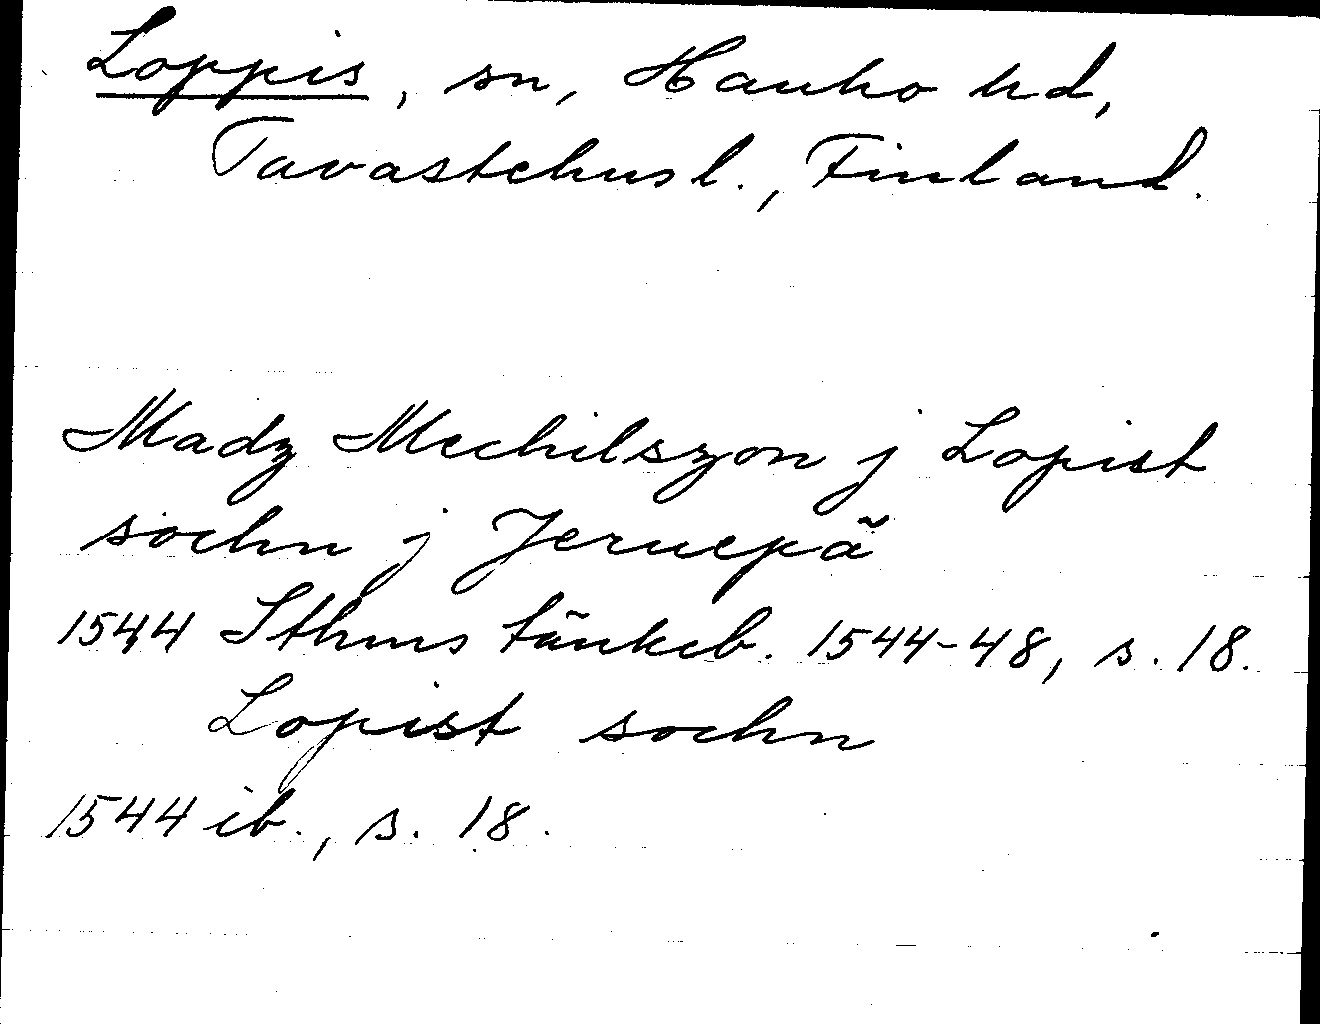 Loppis, sn, Hauho hd,
Tavastehus l., Finland.
Madz Mechilszon j Lopist
sochn j Jeruepä
1544 Sthms tänkeb. 1544-48, s. 18.
Lopist sochn
1544 ib., s. 18.